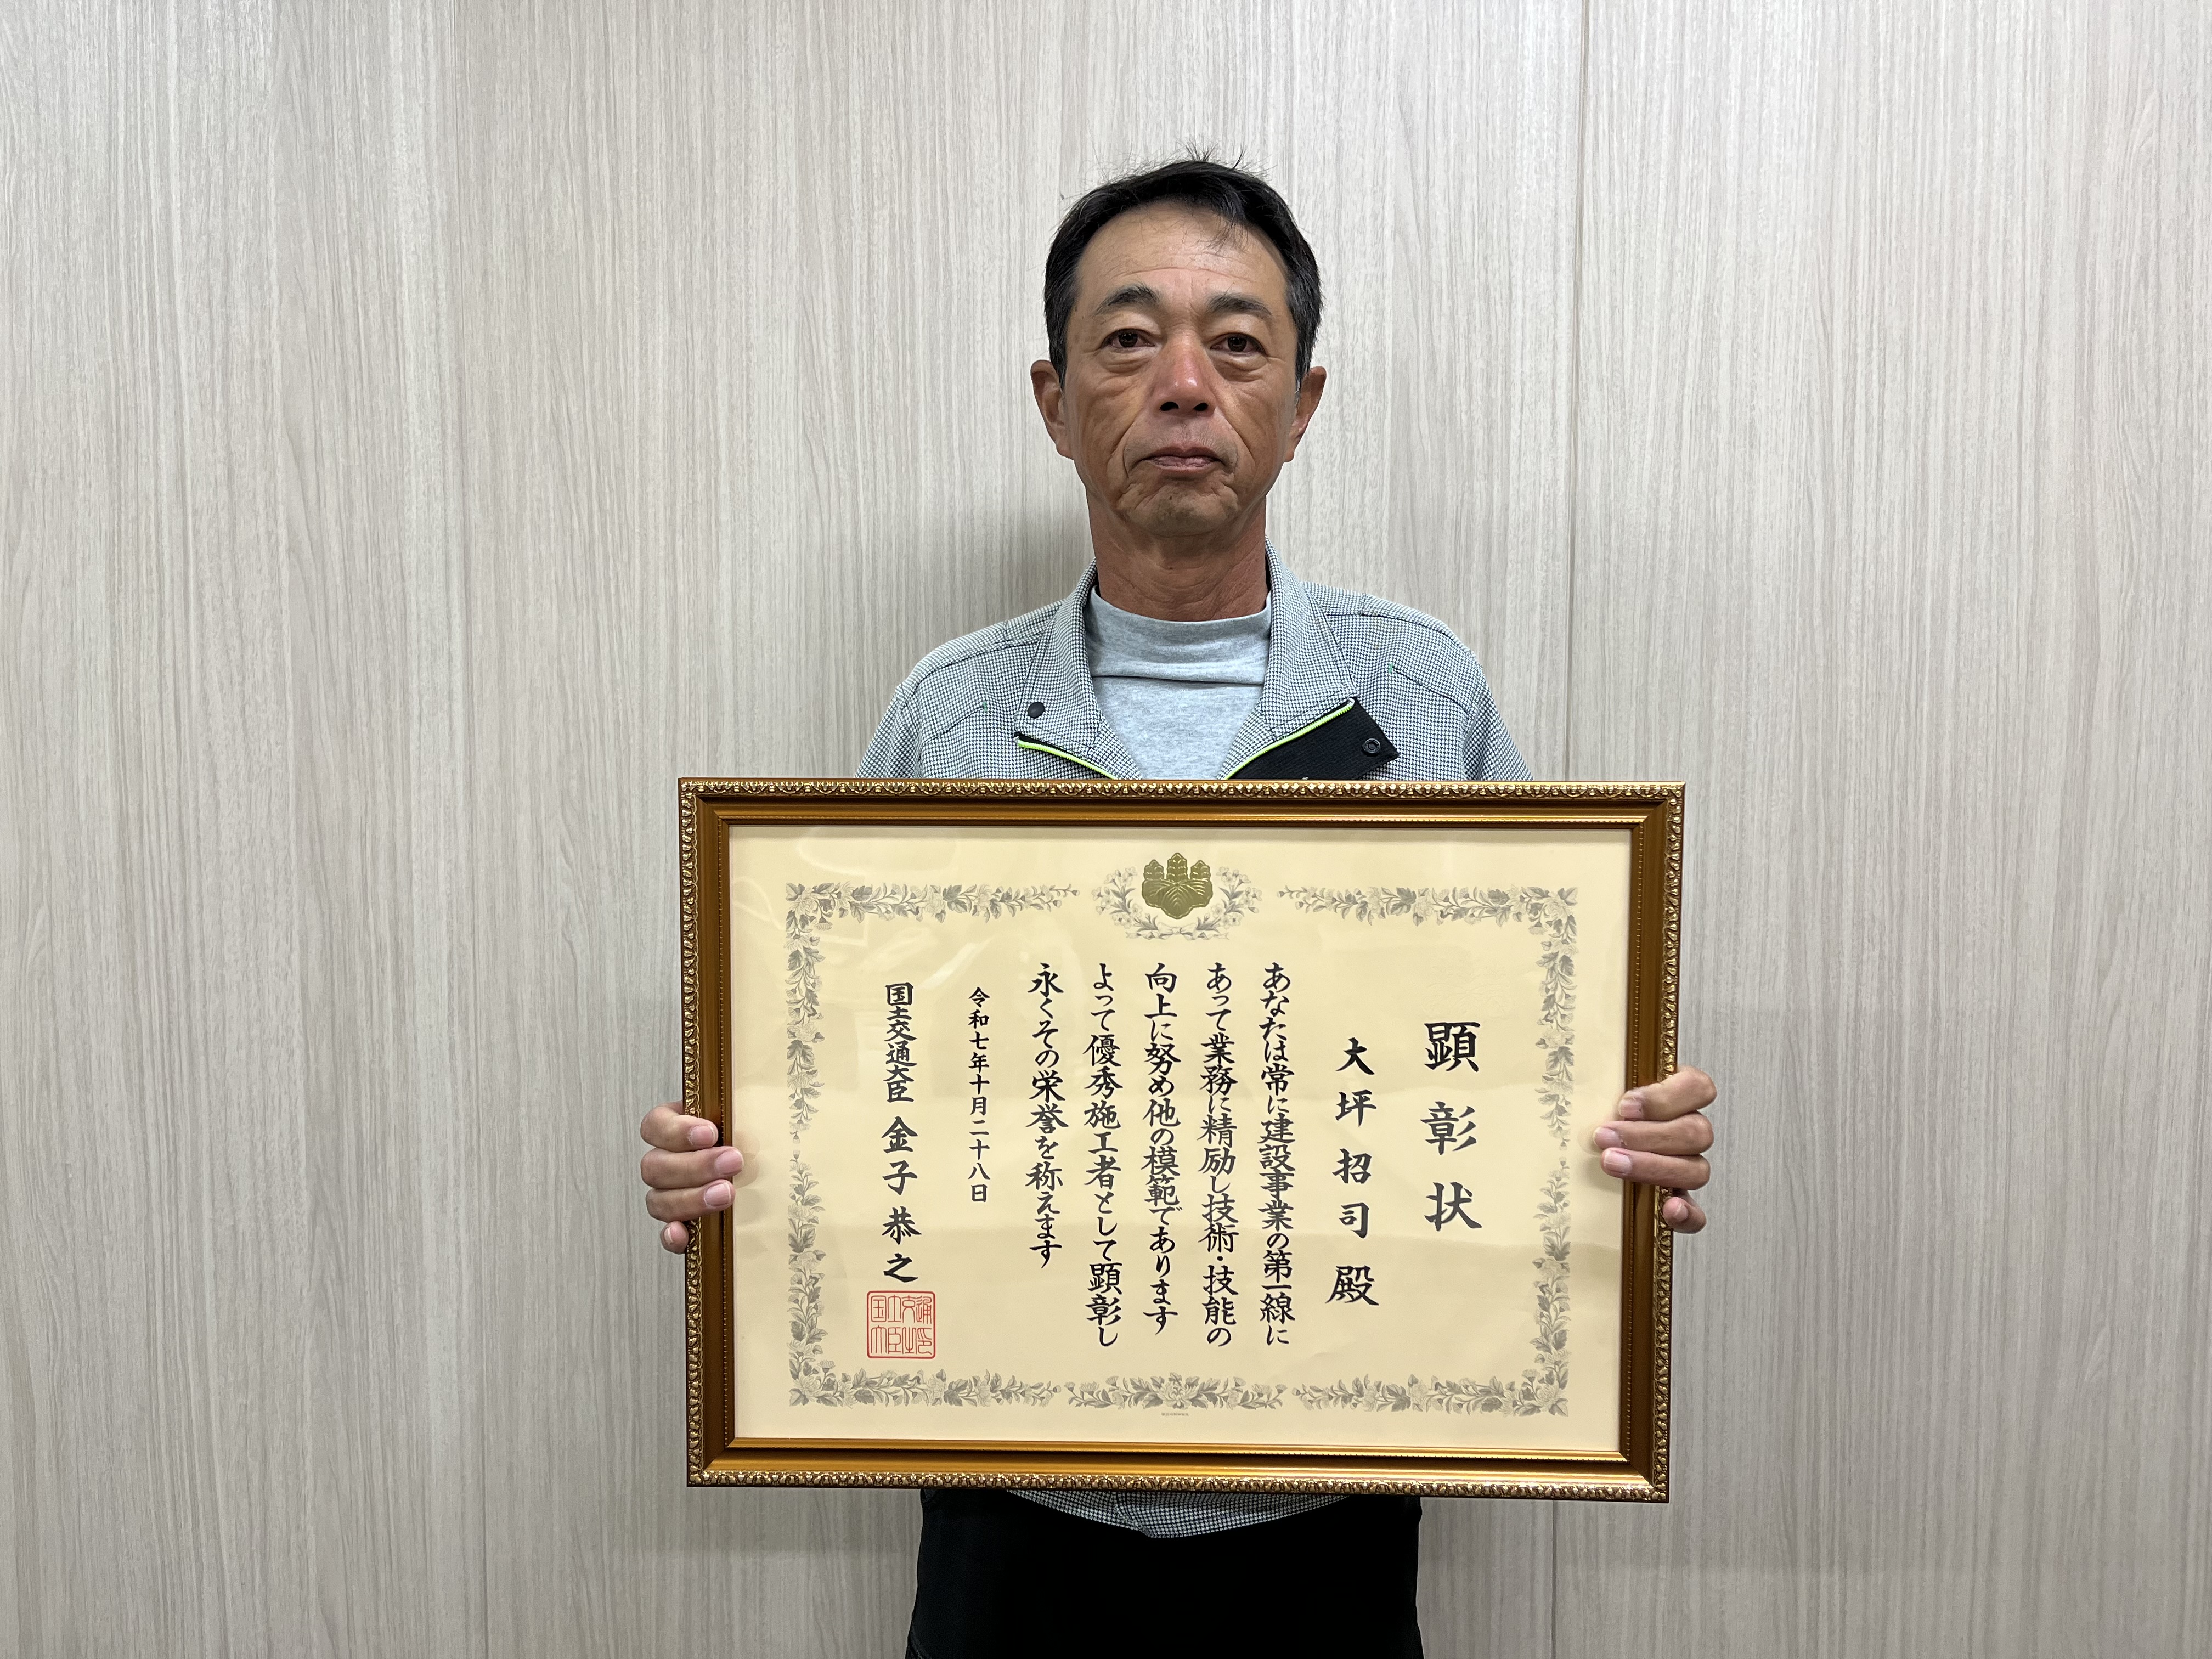 顕彰状
大坪招司殿
あなたは常に建設事業の第一線に
あって業務に精励し技術・技能の
向上に努め他の模範であります
よって優秀施工者として顕彰し
永くその栄誉を称えます
令和七年十月二十八日
国土交通大臣 金子恭之
国土交通
大臣之印